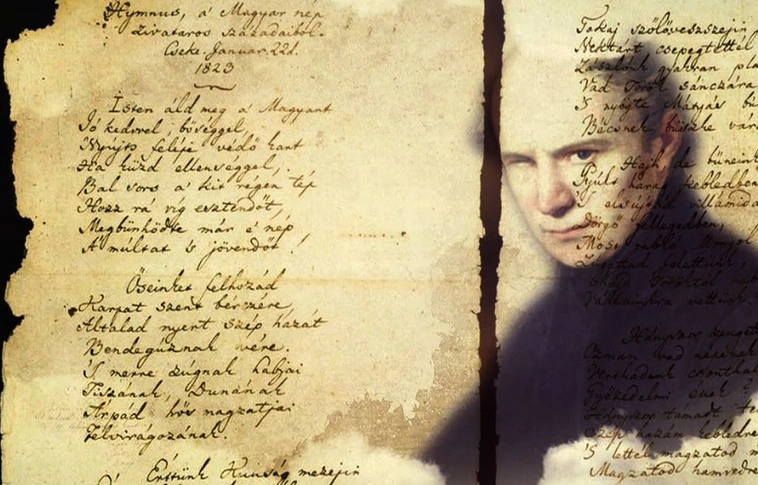 Hymnus, a' Magyar nép
zivataros századaiból.
Cseke. Januar. 22d.
1823
Isten áldd meg a' Magyart
Jó kedvvel, bőséggel,
Nyújts feléje védő kart
Ha küzd ellenséggel,
Bal sors a' kit régen tép
Hozz rá víg esztendőt,
Megbűnhődte már e' nép
A' múltat 's jövendőt!
Őseinket felhozád
Kárpat szent bérczére
Általad nyert szép hazát
Bendegúznak vére.
'S merre zúgnak habjai
Tiszának, Dunának
Árpád hős magzatjai
Felvirágozának.
Értünk Kunság mezejin
Tokaj szőlővesszejin
Nektárt csepegtettél
Zászlónk gyakran
Vad Török sánczára
'S nyögte Mátyás
Bécsnek büszke
Hajh, de bűneink
Gyúlt harag kebledben
'S elsújtád
Dörgő fellegedben,
Most rabló
Vállainkra vettünk
Hányszor zenget
Ozman vad népének
Verthadunk csonthal
Győzedelmi ének
Hányszor támadt
Szép hazám kebledre
'S lettél magzatod
Magzatod hamvedre